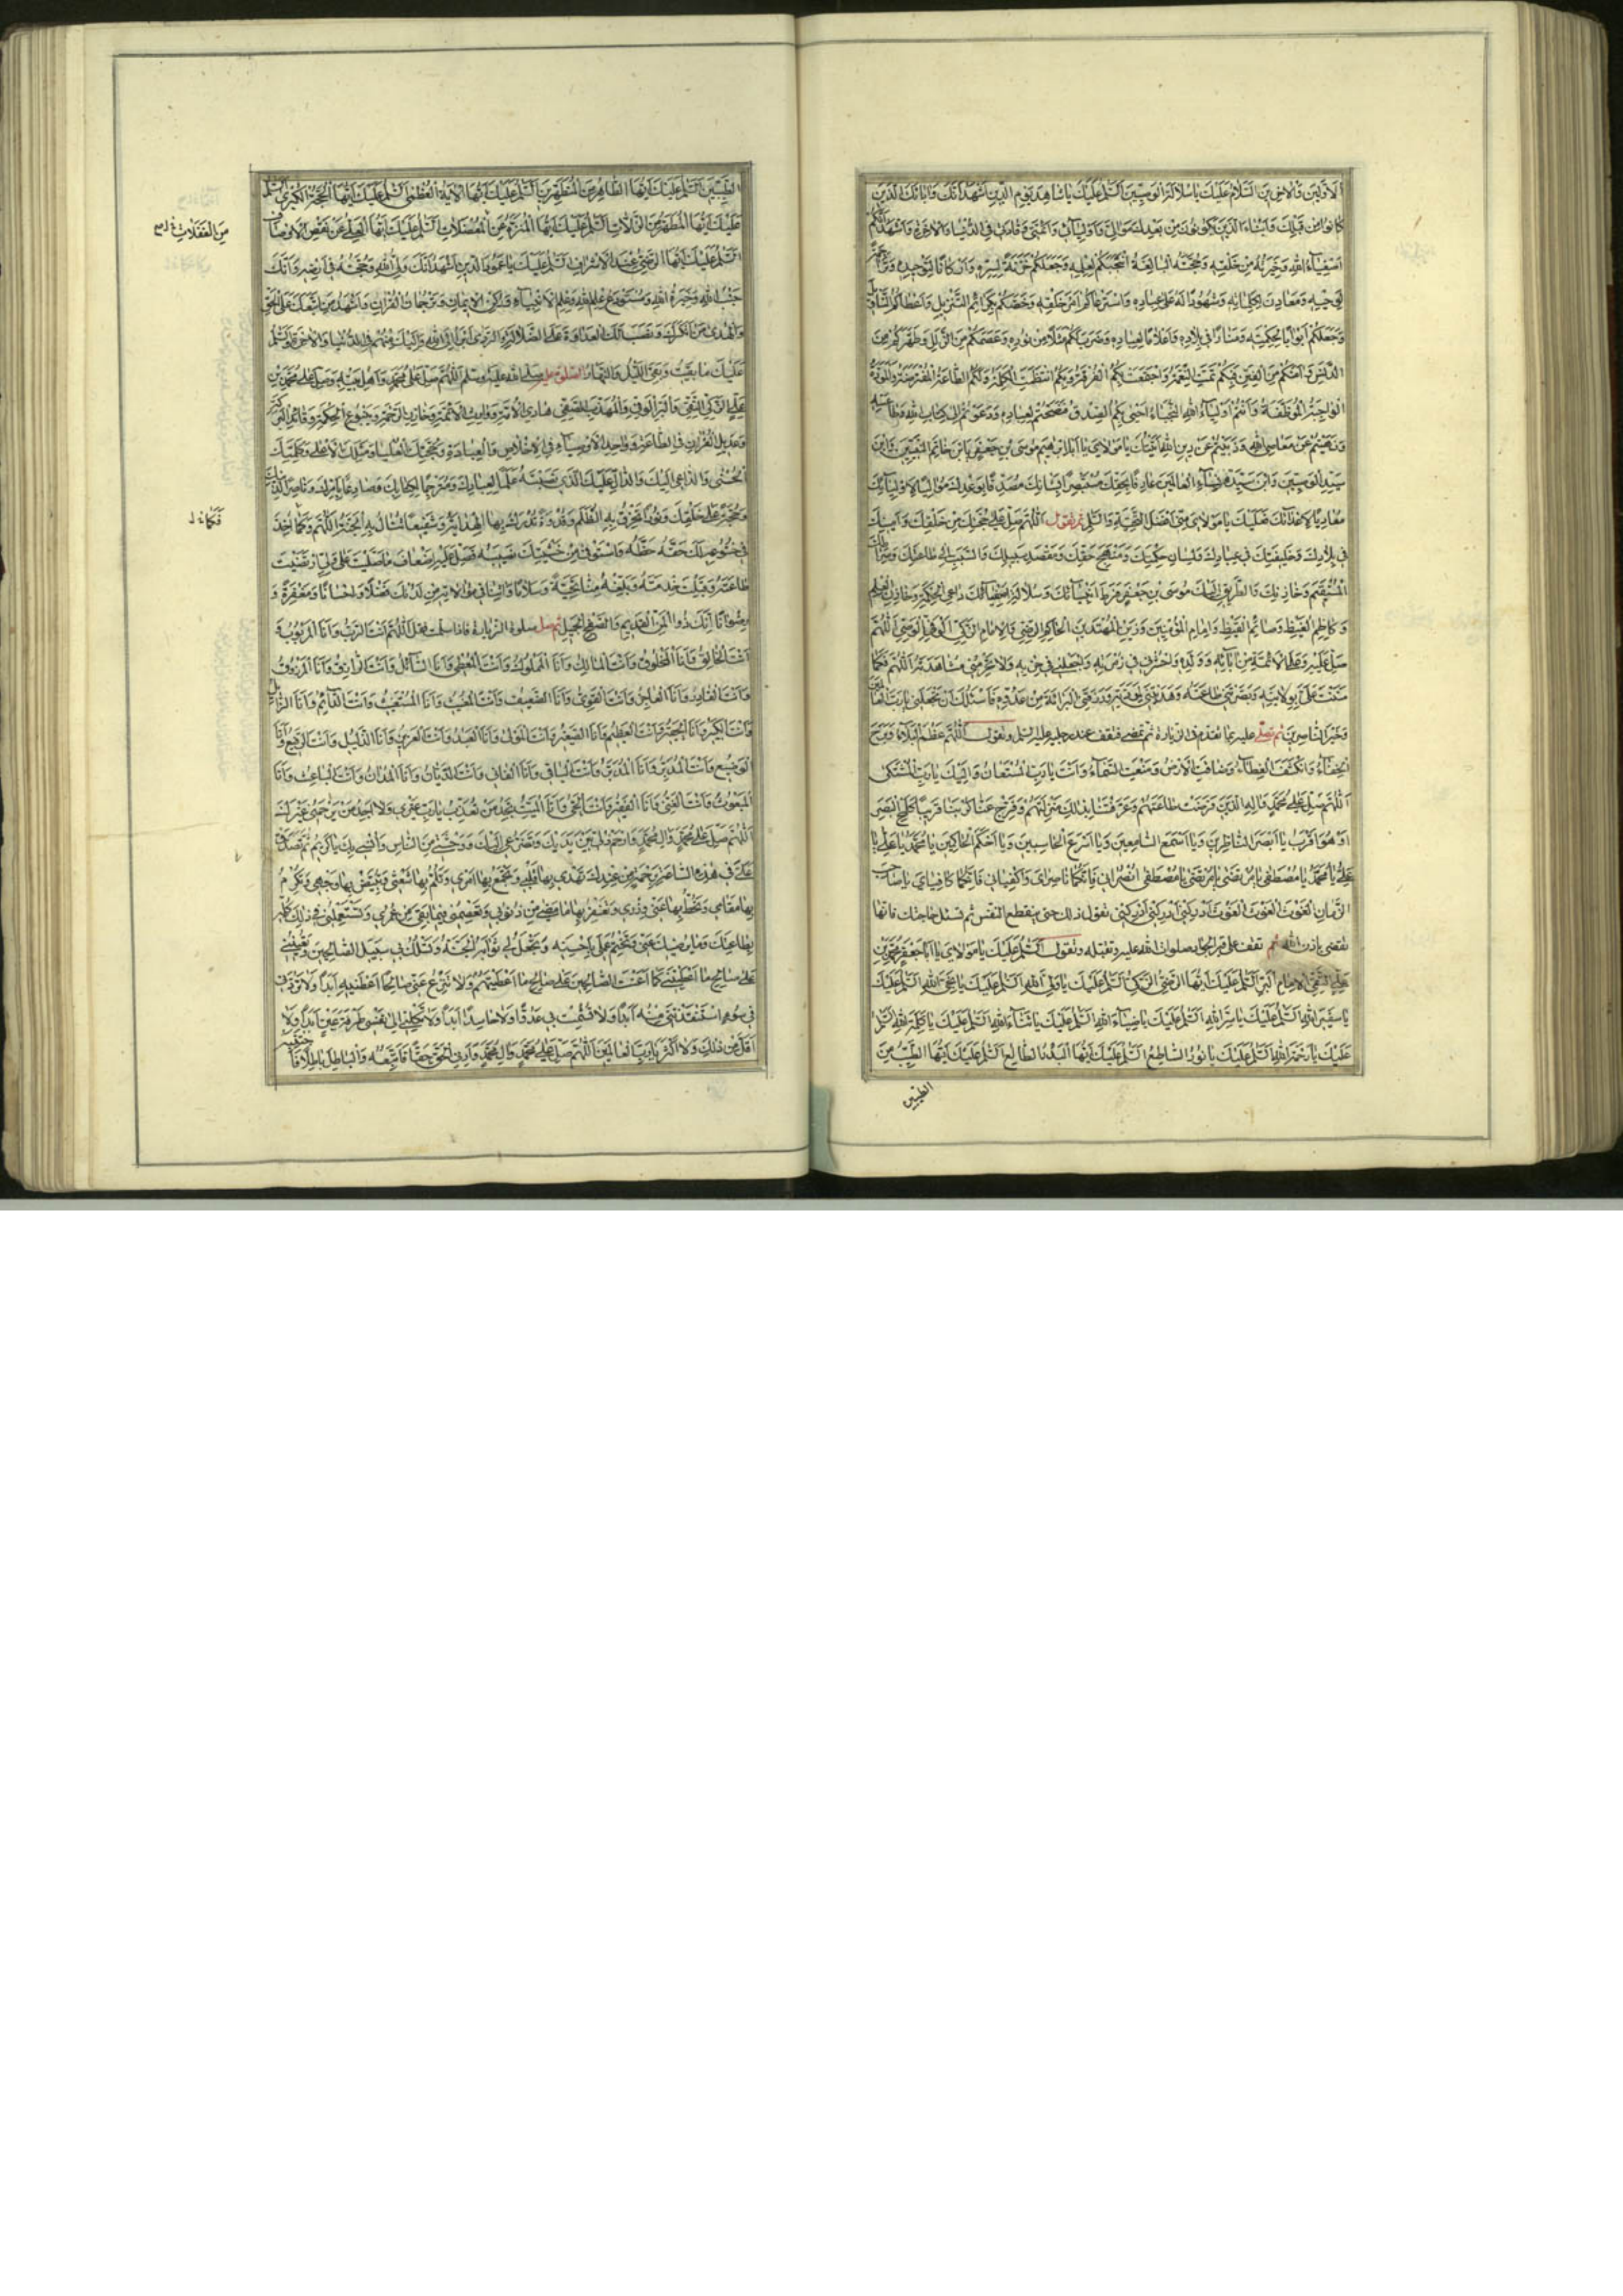 الاولين والاخرين السلام عليك يا سلالة الوصيين السلم عليك يا شاهد يوم الدين اشهد انك واباءك الذين
كانوا من قبلك وابناءك الذين يكونون من بعدك موالي واوليائي وائمتي وقادتي في الدنيا والاخرة واشهد انكم
اصفياء الله وخيرته من خلقه وحجته البالغة انتجبكم لعلمه وجعلكم خزنة لسره واركانا لتوحيده وتراجمة
لوحيه ومعادن لكلماته وشهودا له على عباده واسترعاكم امر خلقه وخصكم بكرائم التنزيل واعطاكم التاويل
وجعلكم ابوابا لحكمته ومنارا في بلاده واعلاما لعباده وضرب لكم مثلا من نوره وعصمكم من الزلل وطهركم من
الدنس وامنكم من الفتن فبكم تمت النعمة واجتمعت بكم الفرقة وبكم انتظمت الكلمة ولكم الطاعة المفترضة والمودة
الواجبة الموظفة وانتم اولياء الله النجباء احيى بكم الصدق فنصحتم لعباده ودعوتم الى كتاب الله وطاعته
ونهيتم عن معاصي الله وذببتم عن دين الله اتيتك يا مولاي يا ابا ابراهيم موسى بن جعفر يا بن خاتم النبيين وابن
سيد الوصيين وابن سيدة نساء العالمين عارفا بحقك مستبصرا بشانك مصدقا بوعدك مواليا لاوليائك
معاديا لاعدائك فعليك يا مولاي مني افضل التحية والسلم ثم تقول اللهم صل على حجتك من خلقك وامينك
في بلادك وخليفتك في عبادك ولسان حكمتك ومنهج حقك ومقصد سبيلك والسبب الى طاعتك وصراطك
المستقيم وخازنك والطريق اليك موسى بن جعفر فرط انبيائك وسلالة اصفيائك داعي الحكمة وخازن العلم
وكاظم الغيظ وصائم القيظ وامام المؤمنين وزين المهتدين الحاكم الرضي والامام الزكي الوفي الوصي اللهم
صل عليه وعلى الائمة من ابائه وولده واحشرني في زمرته واجعلني في حزبه ولا تحرمني مشاهدته اللهم فكما
مننت علي بولايته وبصرتني طاعته وهديتني لمودته ورزقتني البراءة من عدوه فاسئلك ان تجعلني يا رب العالمين
وخير الناصرين ثم تصلي عليه بما تقدم في الزيارة ثم تمضي فتقف عند رجليه عليه السلم وتقول اللهم عظم البلاء وبرح
الخفاء وانكشف الغطاء وضاقت الارض ومنعت السماء وانت يا رب المستعان واليك يا رب المشتكى
اللهم صل على محمد واله الذين فرضت طاعتهم وعرفتنا بذلك منزلتهم وفرج عنا كربنا قريبا كلمح البصر
او هو اقرب يا ابصر الناظرين ويا اسمع السامعين ويا اسرع الحاسبين ويا احكم الحاكمين يا محمد يا علي يا
علي يا محمد يا مصطفى يا مرتضى يا مرتضى يا مصطفى انصراني فانكما ناصراي واكفياني فانكما كافياي يا صاحب
الزمان الغوث الغوث الغوث ادركني ادركني ادركني تقول ذلك حتى ينقطع النفس ثم تسئل حاجتك فانها
تقضى باذن الله ثم تقف على قبر الجواد صلوات الله عليه وتقبله وتقول السلم عليك يا مولاي يا ابا جعفر محمد بن
علي التقي الامام البر السلم عليك ايها الرضي الزكي السلم عليك يا ولي الله السلم عليك يا نجي الله السلم عليك
يا سفير الله السلم عليك يا سر الله السلم عليك يا ضياء الله السلم عليك يا سناء الله السلم عليك يا كلمة الله السلم
عليك يا رحمة الله السلم عليك يا نور الساطع السلم عليك ايها البدر الطالع السلم عليك ايها الطيب من
الطيبين
الطيبين السلم عليك ايها الطاهر من المطهرين السلم عليك ايها الاية العظمى السلم عليك ايها الحجة الكبرى السلم
عليك ايها المطهر من الزلات السلم عليك ايها المنزه عن المعضلات السلم عليك ايها العلي عن نقص الاوصاف
السلم عليك ايها الرضي عند الاشراف السلم عليك يا عمود الدين اشهد انك ولي الله وحجته في ارضه وانك
جنب الله وخيرة الله ومستودع علم الله وعلم الانبياء وركن الايمان وترجمان القران واشهد من اتبعك على الحق
والهدى من انكرك ونصب لك العداوة على الضلالة والردى ابرأ الى الله واليك منهم في الدنيا والاخرة والسلم
عليك ما بقيت وبقي الليل والنهار الصلوة عليه صلى الله عليه وسلم اللهم صل على محمد واهل بيته وصل على محمد بن
علي الزكي التقي والبر الوفي والمهذب الصفي هادي الامة ووارث الائمة وخازن الرحمة وينبوع الحكمة وقائد البركة
وعديل القران في الطاعة وواحد الاوصياء في الاخلاص والعبادة وحجتك العليا ومثلك الاعلى وكلمتك
الحسنى والداعي اليك والدال عليك الذي نصبته علما لعبادك ومترجما لكتابك وصادعا بامرك وناصرا لدينك
وحجة على خلقك ونورا تخرق به الظلم وقدوة تدرك بها الهداية وشفيعا تنال به الجنة اللهم وكما اخذ
في خشوعه لك حقه حظه واستوفى من خشيتك نصيبه فصل عليه اضعاف ما صليت على ولي ارتضيت
طاعته وقبلت خدمته وبلغه منا تحية وسلاما واتنا في موالاته من لدنك فضلا واحسانا ومغفرة و
رضوانا انك ذو المن القديم والصفح الجميل ثم صل صلوة الزيارة فاذا سلمت فقل اللهم انت الرب وانا المربوب و
انت الخالق وانا المخلوق وانت المالك وانا المملوك وانت المعطي وانا السائل وانت الرازق وانا المرزوق
وانت القادر وانا العاجز وانت القوي وانا الضعيف وانت المغيث وانا المستغيث وانت الدائم وانا الزائل
وانت الكبير وانا الحقير وانت العظيم وانا الصغير وانت المولى وانا العبد وانت العزيز وانا الذليل وانت الرفيع وانا
الوضيع وانت المدبر وانا المدبر وانت الباقي وانا الفاني وانت الديان وانا المدان وانت الباعث وانا
المبعوث وانت الغني وانا الفقير وانت الحي وانا الميت تجد من تعذب يا رب غيري ولا اجد من يرحمني غيرك
اللهم صل على محمد وال محمد وارحم ذلي بين يديك وتضرعي اليك ووحشتي من الناس وانسي بك يا كريم ثم تصدق
علي في هذه الساعة برحمة من عندك تهدي بها قلبي وتجمع بها امري وتلم بها شعثي وتبيض بها وجهي وتكرم
بها مقامي وتحط بها عني وزري وتغفر بها ما مضى من ذنوبي وتعصمني فيما بقي من عمري وتستعملني في ذلك كله
بطاعتك وما يرضيك عني وتختم عملي باحسنه وتجعل لي ثوابه الجنة وتسلك بي سبيل الصالحين وتعينني
على صالح ما اعطيتني كما اعنت الصالحين على صالح ما اعطيتهم ولا تنزع عني صالحا اعطيتنيه ابدا ولا تردني
في سوء استنقذتني منه ابدا ولا تشمت بي عدوا ولا حاسدا ابدا ولا تكلني الى نفسي طرفة عين ابدا ولا
اقل من ذلك ولا اكثر يا رب العالمين اللهم صل على محمد وال محمد وارني الحق حقا فاتبعه والباطل باطلا فاجتنبه
من المعضلات
فكما